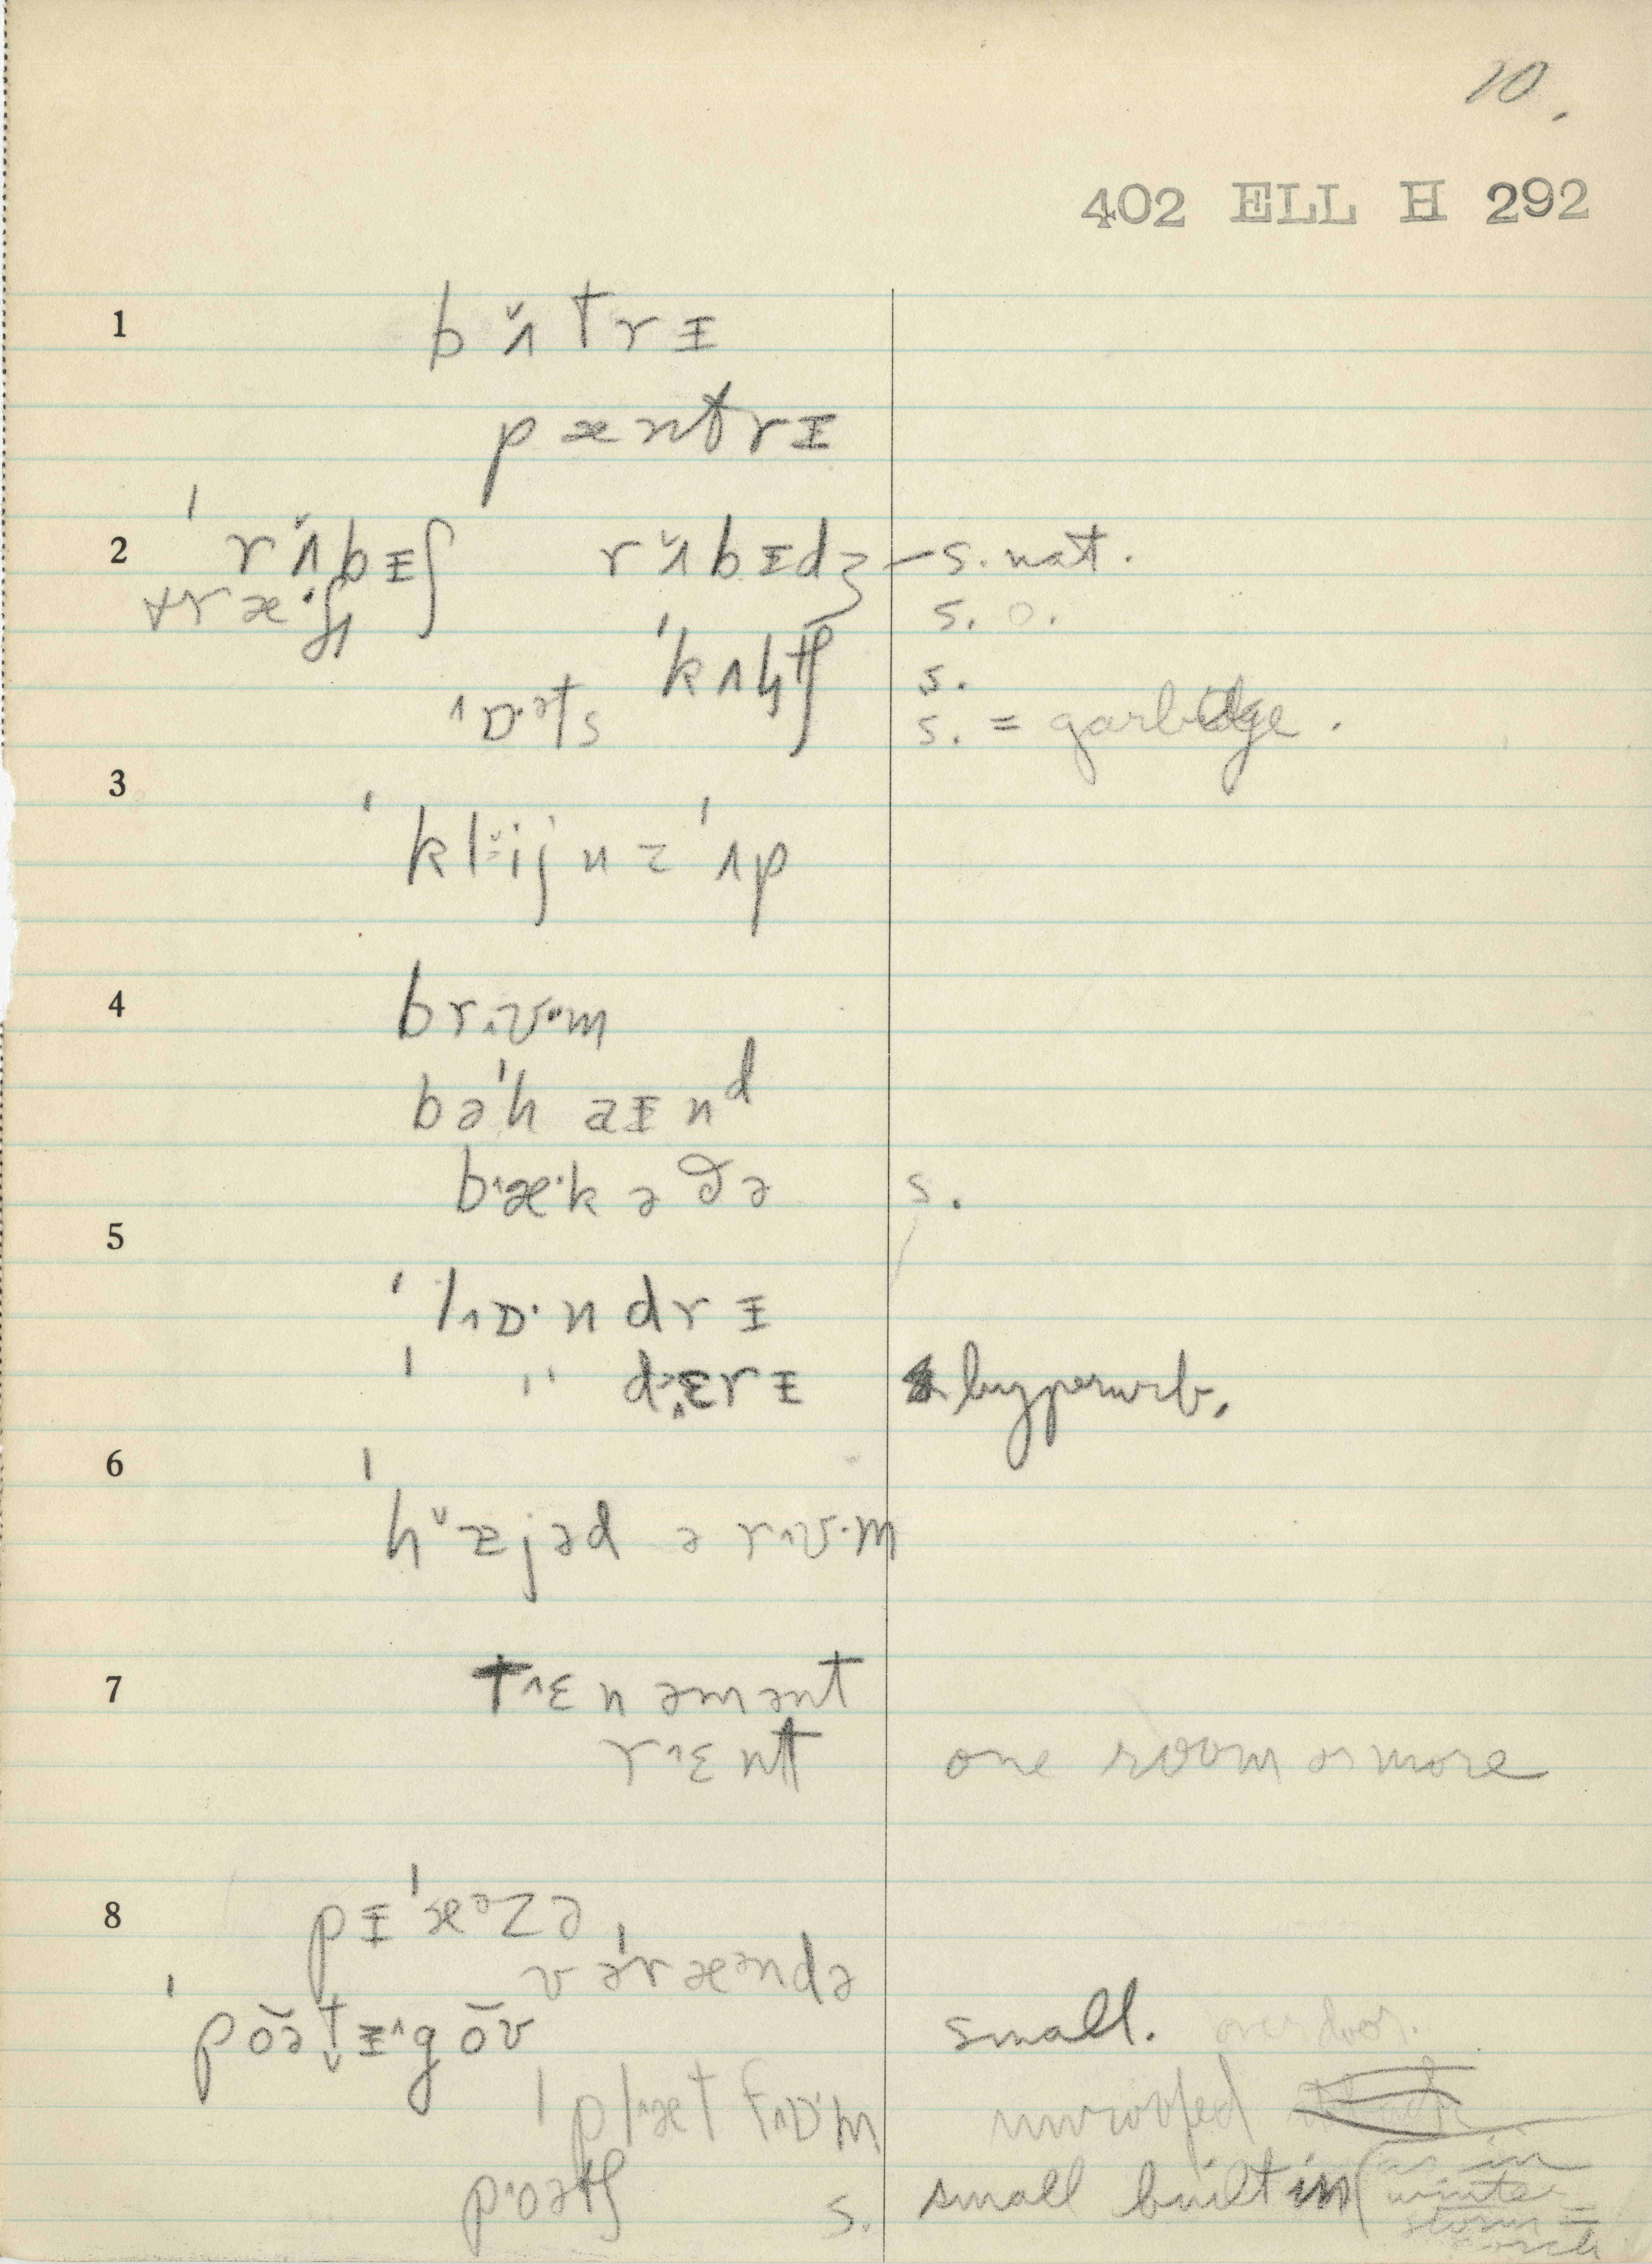 10.
402 ELL H 292
1 b ʌ̌ t r ɪ
p æ n t r ɪ
2 ˈr ʌ̌ b ɪ ʃ r ʌ̌ b ɪ d ʒ – s. nat.
t r æ · ʃ s. o.
ˈk ʌ l tʃ s.
^ɒ·əts s. = garbage.
3
ˈk l ij n z ˈʌ p
4 b r ^ʊ· m
b ə ˈh a ɪ n ᵈ
b ^æ· k ə ð ə s.
5
ˈl ^ɒ· n d r ɪ
ˈ " d ^ɛ r ɪ hyperurb.
6
ˈh ˇæ z j ə d ə r ^ʊ· m
7 t ^ɛ n ə m ə n t
r ^ɛ n t one room or more
8 p ɪ ˈæ ᵊ z ə
v ə ˈr æ ᵊ n d ə
ˈp ǒ ə t ɪ ^ g ǒ ʊ small. over door.
ˈp l ^æ t f ^ɒ· m unroofed
p ^o ə tʃ s. small built in (as in
winter
storm =
porch